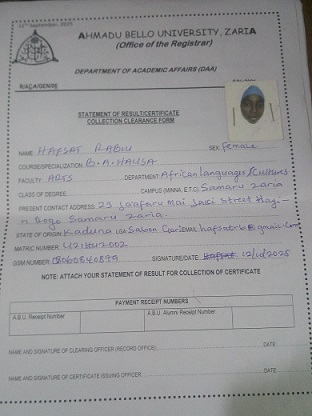 22nd September, 2025
AHMADU BELLO UNIVERSITY, ZARIA
(Office of the Registrar)
DEPARTMENT OF ACADEMIC AFFAIRS (DAA)
R/ACA/GEN/96
STATEMENT OF RESULT/CERTIFICATE
COLLECTION CLEARANCE FORM
NAME HAFSAT RABIU SEX: Female
COURSE/SPECIALIZATION: B.A. HAUSA
FACULTY: ARTS DEPARTMENT: African languages/Cultures
CLASS OF DEGREE CAMPUS (MINNA, E.T.C) Samaru zaria
PRESENT CONTACT ADDRESS: Mai Street
Dogo Samaru zaria
STATE OF ORIGIN Kaduna LGA Sabon Gari Email
MATRIC NUMBER:
GSM NUMBER SIGNATURE/DATE Hafsat 12/10/2025
NOTE: ATTACH YOUR STATEMENT OF RESULT FOR COLLECTION OF CERTIFICATE
PAYMENT RECEIPT NUMBERS
A.B.U Receipt Number A.B.U. Alumni Receipt Number
NAME AND SIGNATURE OF CLEARING OFFICER (RECORD OFFICE) DATE
NAME AND SIGNATURE OF CERTIFICATE ISSUING OFFICER DATE